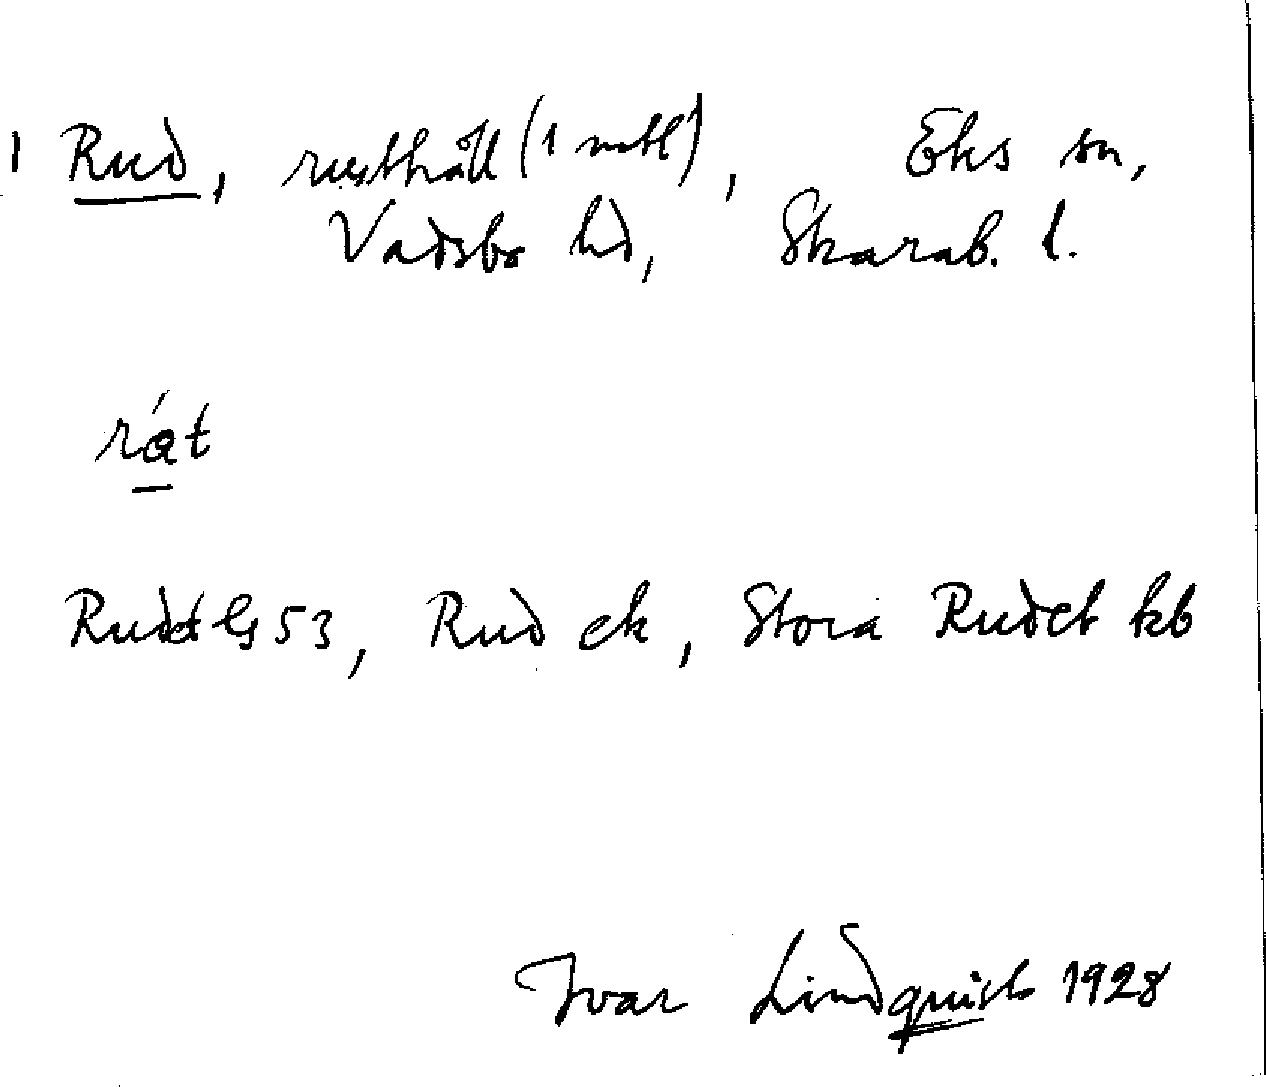 1 Rud, rusthåll (1 mtl), Eks sn,
Vadsbo hd, Skarab. l.
rát
Rudet Gs 53, Rud ek, Stora Rudet kb
Ivar Lindquist 1928